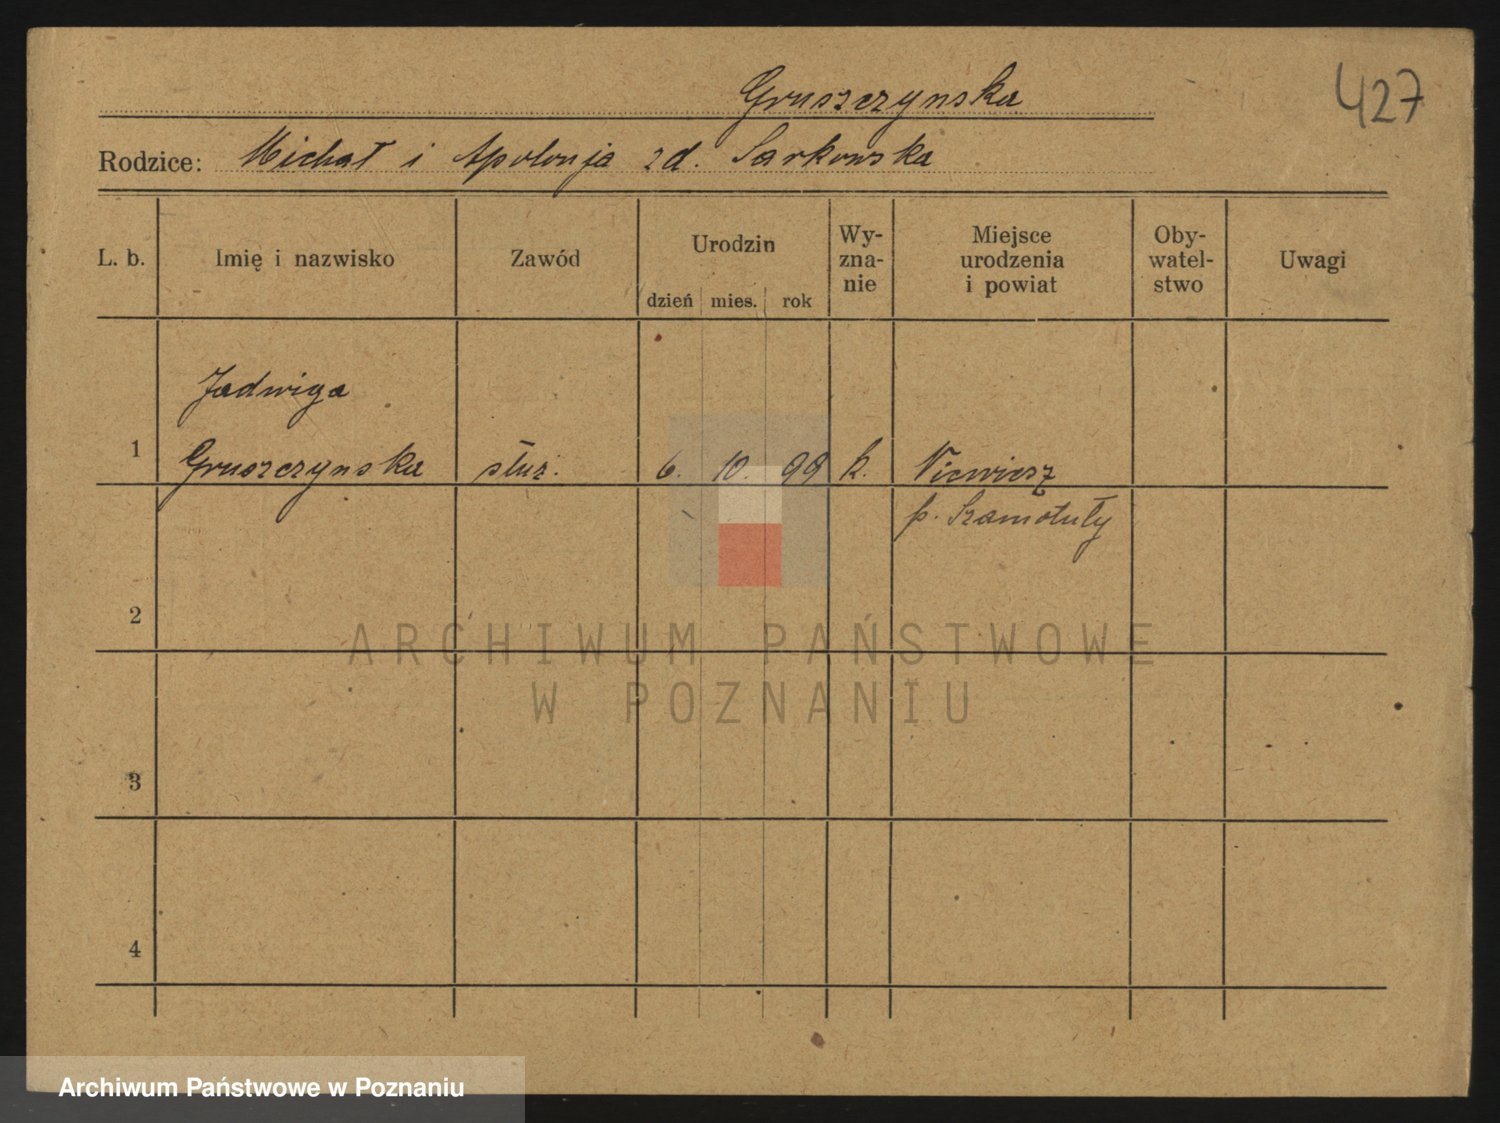 Gruszczynska
427
Rodzice: Michał i Apolonja zd. Sarkowska
L. b. Imię i nazwisko Zawód Urodzin dzień mies. rok Wy-znanie Miejsce urodzenia i powiat Oby-watel-stwo Uwagi
Jadwiga
1 Gruszczynska służ. 6. 10. 99 k. Niewierz
p. Szamotuły
2
ARCHIWUM PAŃSTWOWE
W POZNANIU
3
4
Archiwum Państwowe w Poznaniu